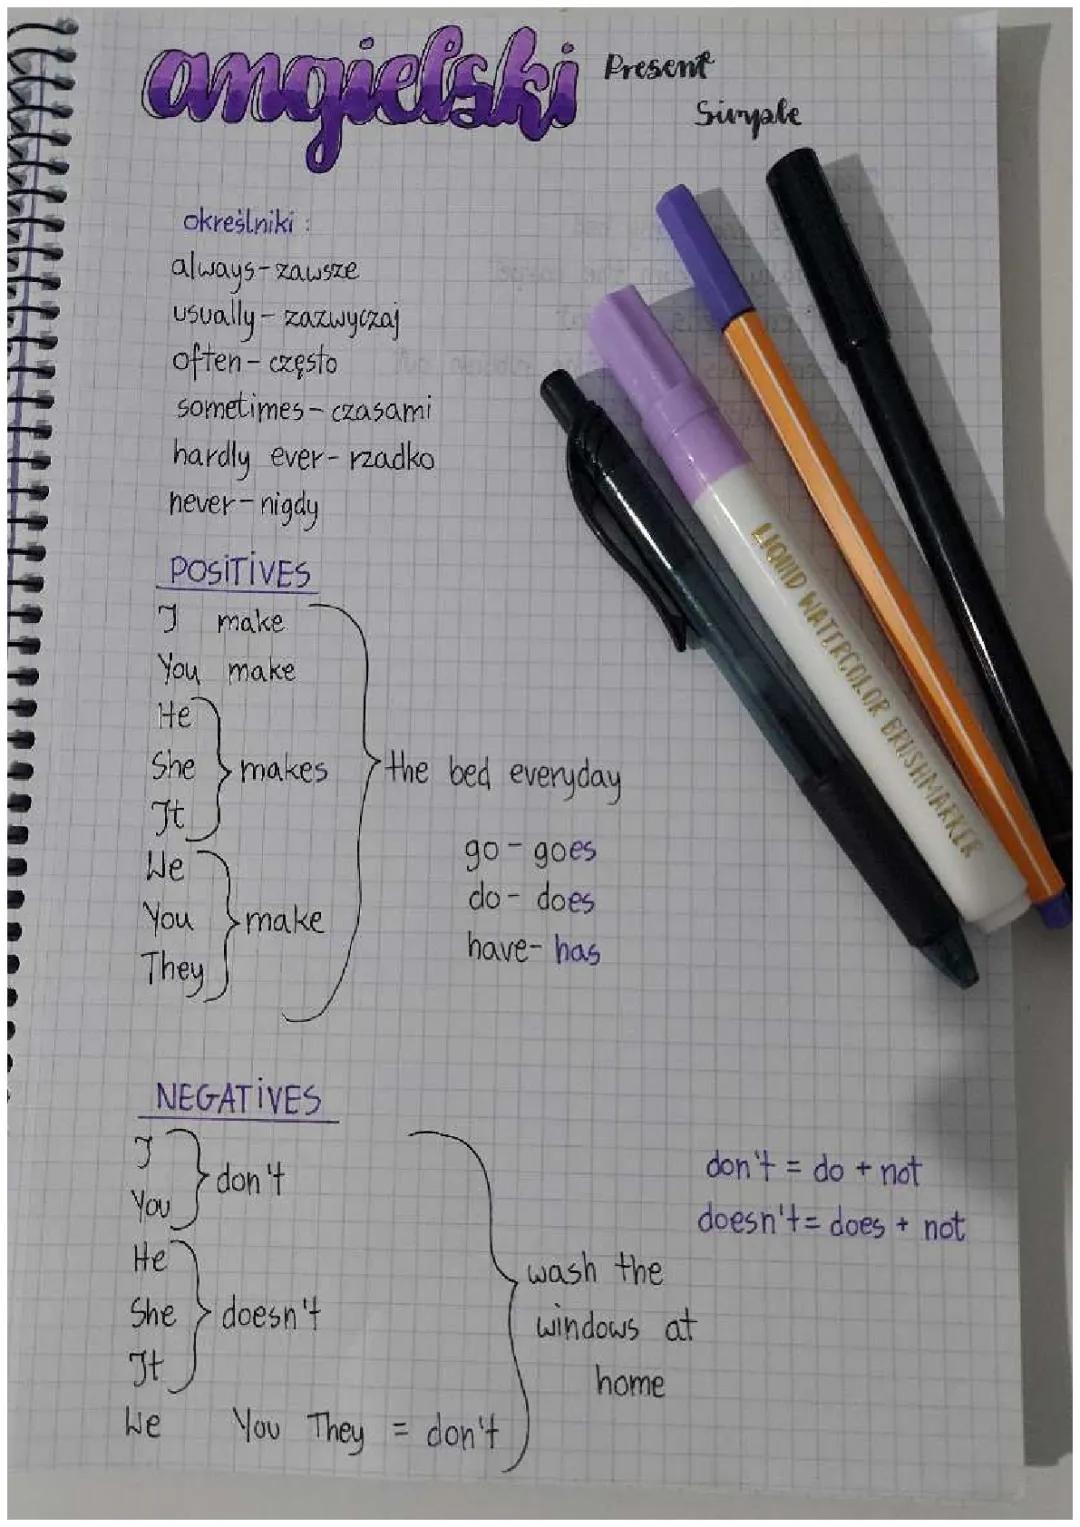 angielski Present Simple
określniki :
always - zawsze
usually - zazwyczaj
often - często
sometimes - czasami
hardly ever - rzadko
never - nigdy
POSITIVES
I make
You make
He
She makes
It
We
You make
They
the bed everyday
go - goes
do - does
have - has
NEGATIVES
I
You don't
He
She doesn't
It
We You They = don't
wash the
windows at
home
don't = do + not
doesn't = does + not
LIQUID WATERCOLOR BRUSHMARKER